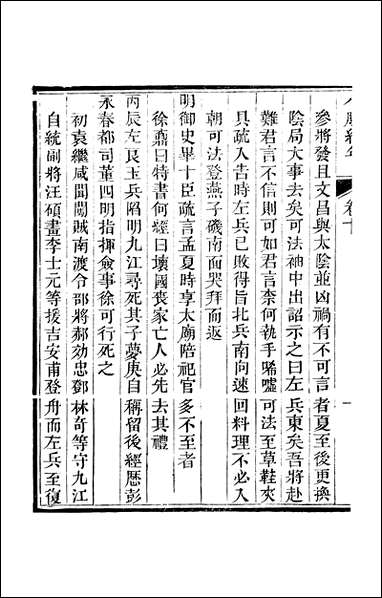 卷十
一
參將發且文昌與太陰並凶禍有不可言者夏至後更換
陰局大事去矣可法袖中出詔示之曰左兵東矣吾將赴
難君言不信則可如君言柰何執手唏噓可法至草鞋夾
具疏入告時左兵已敗得旨北兵南向速回料理不必入
朝可法登燕子磯南面哭拜而返
明御史畢十臣疏言孟夏時享太廟陪祀官多不至者
徐鼒曰特書何曰壞國喪家亡人必先去其禮
丙辰左良玉兵陷明九江尋死其子夢庚自稱留後經歷彭
永春都司董四明指揮僉事徐可行死之
初袁繼咸聞闖賊南渡令部將郝効忠鄧林奇等守九江
自統副將汪碩畫李士元等援吉安甫登舟而左兵至復